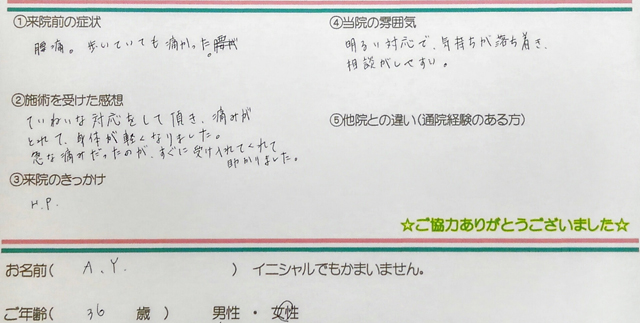 ①来院前の症状
腰痛。歩いていても痛かった。
②施術を受けた感想
ていねいな対応をして頂き、痛みが
とれて、身体が軽くなりました。
急な痛みだったのが、すぐに受け入れてくれて
助かりました。
③来院のきっかけ
H.P.
④当院の雰囲気
明るい対応で、気持ちが落ち着き、
相談がしやすい。
⑤他院との違い(通院経験のある方)
☆ご協力ありがとうございました☆
お名前( A.Y. ) イニシャルでもかまいません。
ご年齢( 36 歳 ) 男性・女性